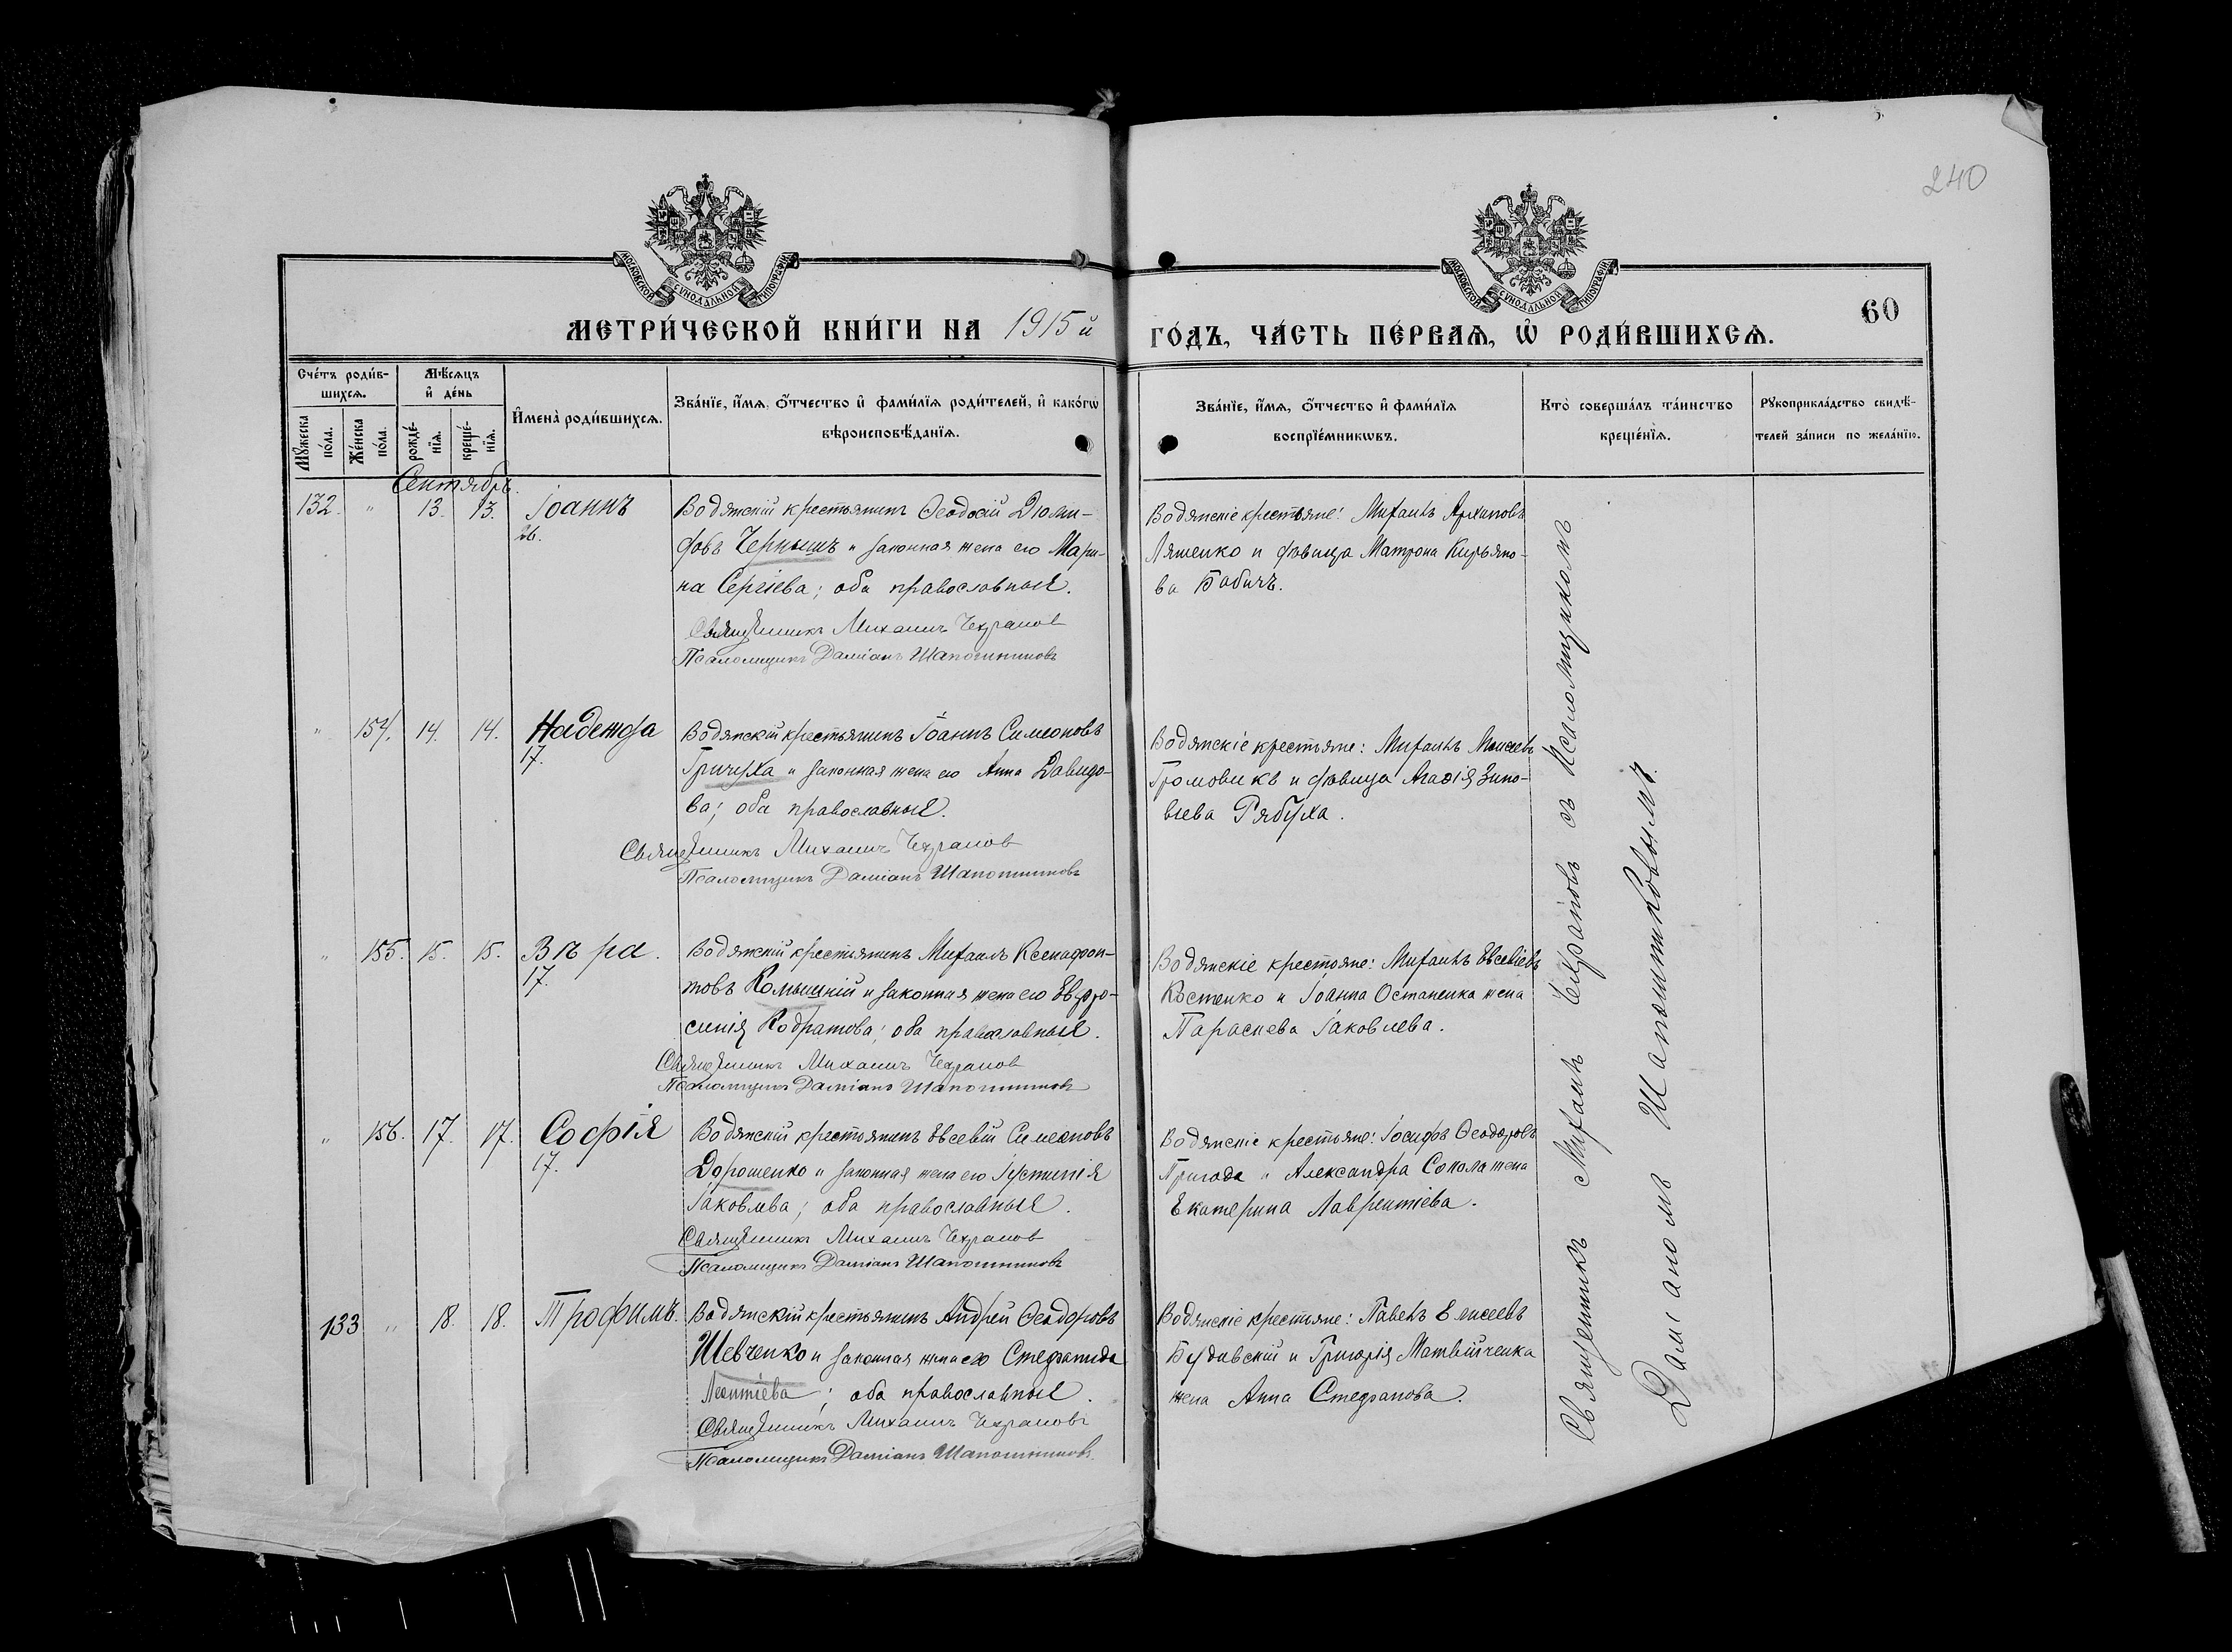 240
МОСКОВСКОЙ СУНОДАЛЬНОЙ ТИПОГРАФІИ
МОСКОВСКОЙ СУНОДАЛЬНОЙ ТИПОГРАФІИ
60
МЕТРИ́ЧЕСКОЙ КНИ́ГИ НА 1915й ГО́ДЪ, ЧА́СТЬ ПЕ́РВАѦ, Ѡ҆ РОДИ́ВШИХСѦ.
Сче́тъ роди́в-
шихсѧ.
Мѣ́сѧцъ
и҆ де́нь
Мꙋ́жеска
по́ла.
Же́нска
по́ла.
рожде́-
нїѧ.
креще́-
нїѧ.
И҆мена̀ роди́вшихсѧ.
Зва́нїе, и҆́мѧ, ѻ҆́тчество и҆ фами́лїѧ роди́телей, и҆ како́гѡ
вѣроисповѣ́данїѧ.
Зва́нїе, и҆́мѧ, ѻ҆́тчество и҆ фами́лїѧ
воспрїе́мникѡвъ.
Кто̀ соверша́лъ та́инство
креще́нїѧ.
Рꙋкоприкла́дство свидѣ́-
телей за́писи по жела́нїю.
Сентябрь.
132. " 13. 13. Іоаннъ
26.
Водянскій крестьянинъ Ѳеодосій
Чернышъ и законная жена его Мари-
на Сергіева; оба православные.
Священникъ Михаилъ Чехрановъ
Псаломщикъ Даміанъ Шапошниковъ
Водянскіе крестьяне: Михаилъ Архиповъ
Ляшенко и дѣвица Матрона Кирьяно-
ва Бабичъ.
" 154. 14. 14. Надежда
17.
Водянскій крестьянинъ Іоаннъ Симеоновъ
Гричуха и законная жена его Анна Давидо-
ва; оба православные.
Священникъ Михаилъ Чехрановъ
Псаломщикъ Даміанъ Шапошниковъ
Водянскіе крестьяне: Михаилъ Моисеевъ
Громовикъ и дѣвица Агаѳія Зино-
вьева Рябуха.
" 155. 15. 15. Вѣра.
17.
Водянскій крестьянинъ Михаилъ Ксенофон-
товъ и законная жена его Евфро-
синія Кодратова; оба православные.
Священникъ Михаилъ Чехрановъ
Псаломщикъ Даміанъ Шапошниковъ
Водянскіе крестьяне: Михаилъ Евсевіевъ
Костенко и Іоанна Остапенка жена
Параскева Іаковлева.
" 156. 17. 17. Софія
17.
Водянскій крестьянинъ Евсевій Симеоновъ
Дорошенко и законная жена его Іустинія
Іаковлева; оба православные.
Священникъ Михаилъ Чехрановъ
Псаломщикъ Даміанъ Шапошниковъ
Водянскіе крестьяне: Іосифъ Ѳеодоровъ
Пригода и Александра Сокола жена
Екатерина Лаврентіева.
133 " 18. 18. Трофимъ.
Водянскій крестьянинъ Андрей Ѳеодоровъ
Шевченко и законная жена его Стефанида
Леонтіева; оба православные.
Священникъ Михаилъ Чехрановъ
Псаломщикъ Даміанъ Шапошниковъ
Водянскіе крестьяне: Павелъ Елисеевъ
и Григорія Матвійченка
жена Анна Стефанова.
Священникъ Михаилъ Чехрановъ съ Псаломщикомъ
Даміаномъ Шапошниковымъ.